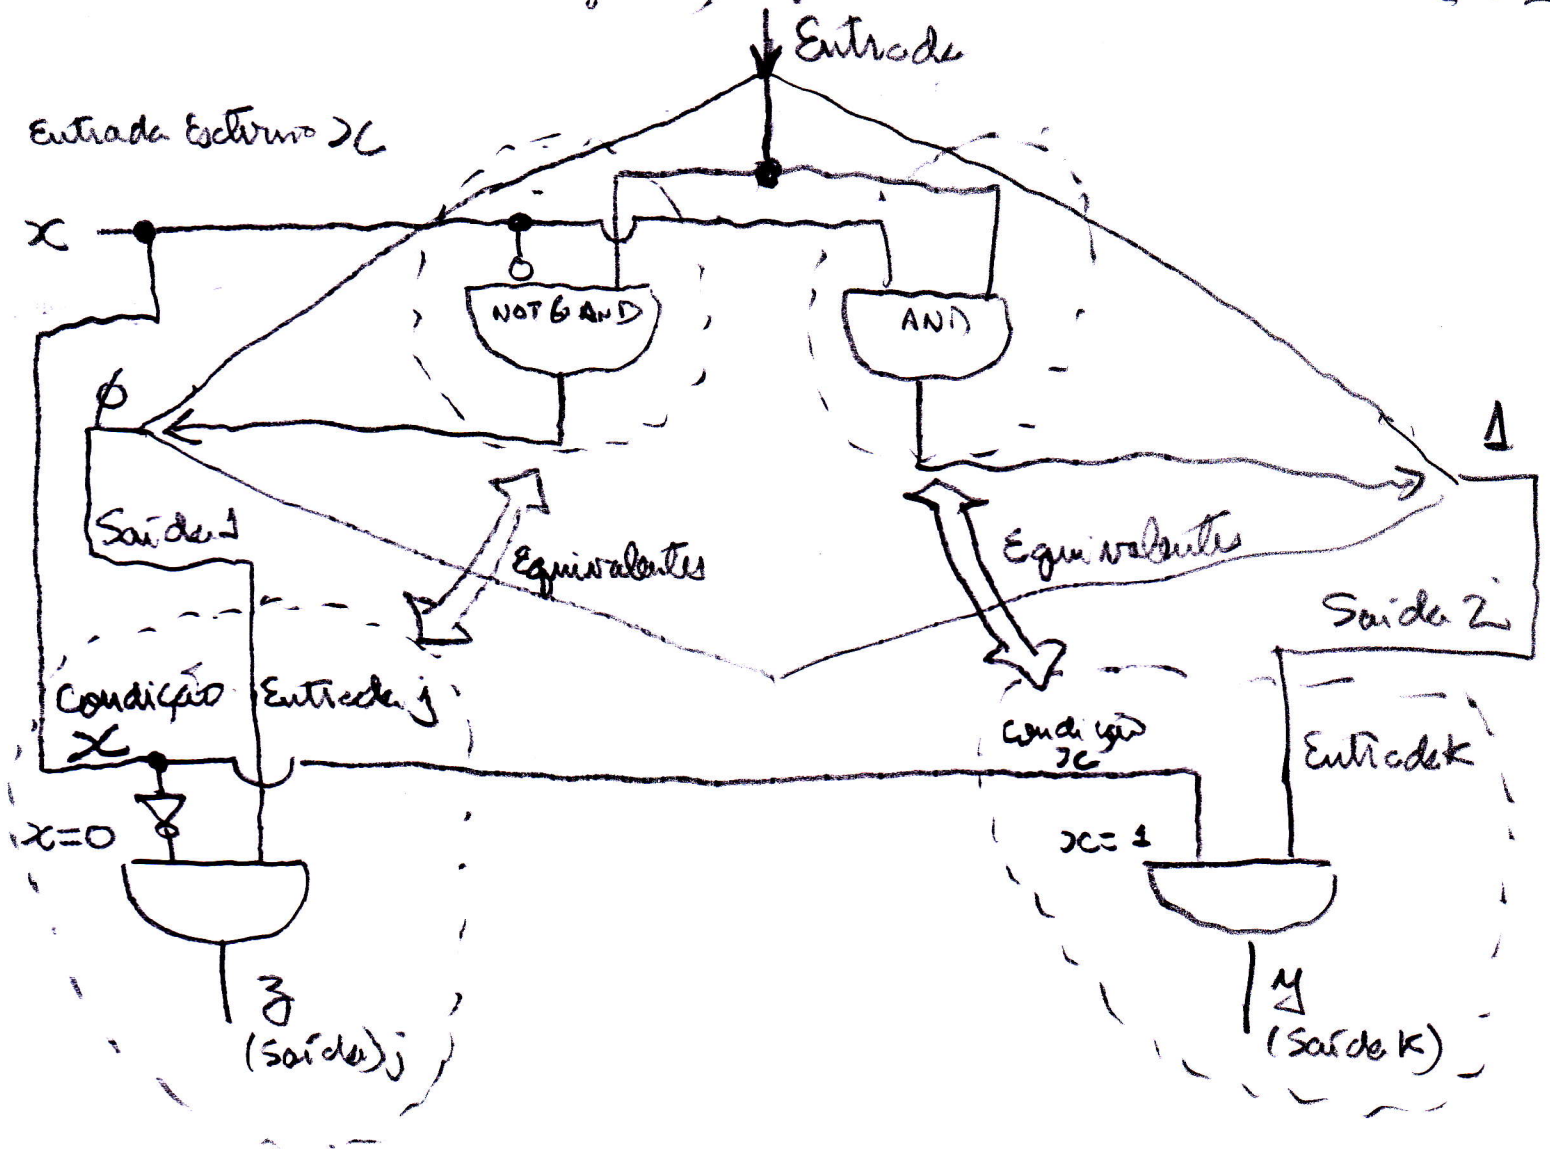 Entrada
Entrada Externo x
x
NOT & AND
AND
φ
1
Saída 1
Equivalentes
Equivalentes
Saída 2
Condição
Entrada j
x
Condição
x
Entrada k
x=0
x=1
z
(Saída) j
y
(Saída k)